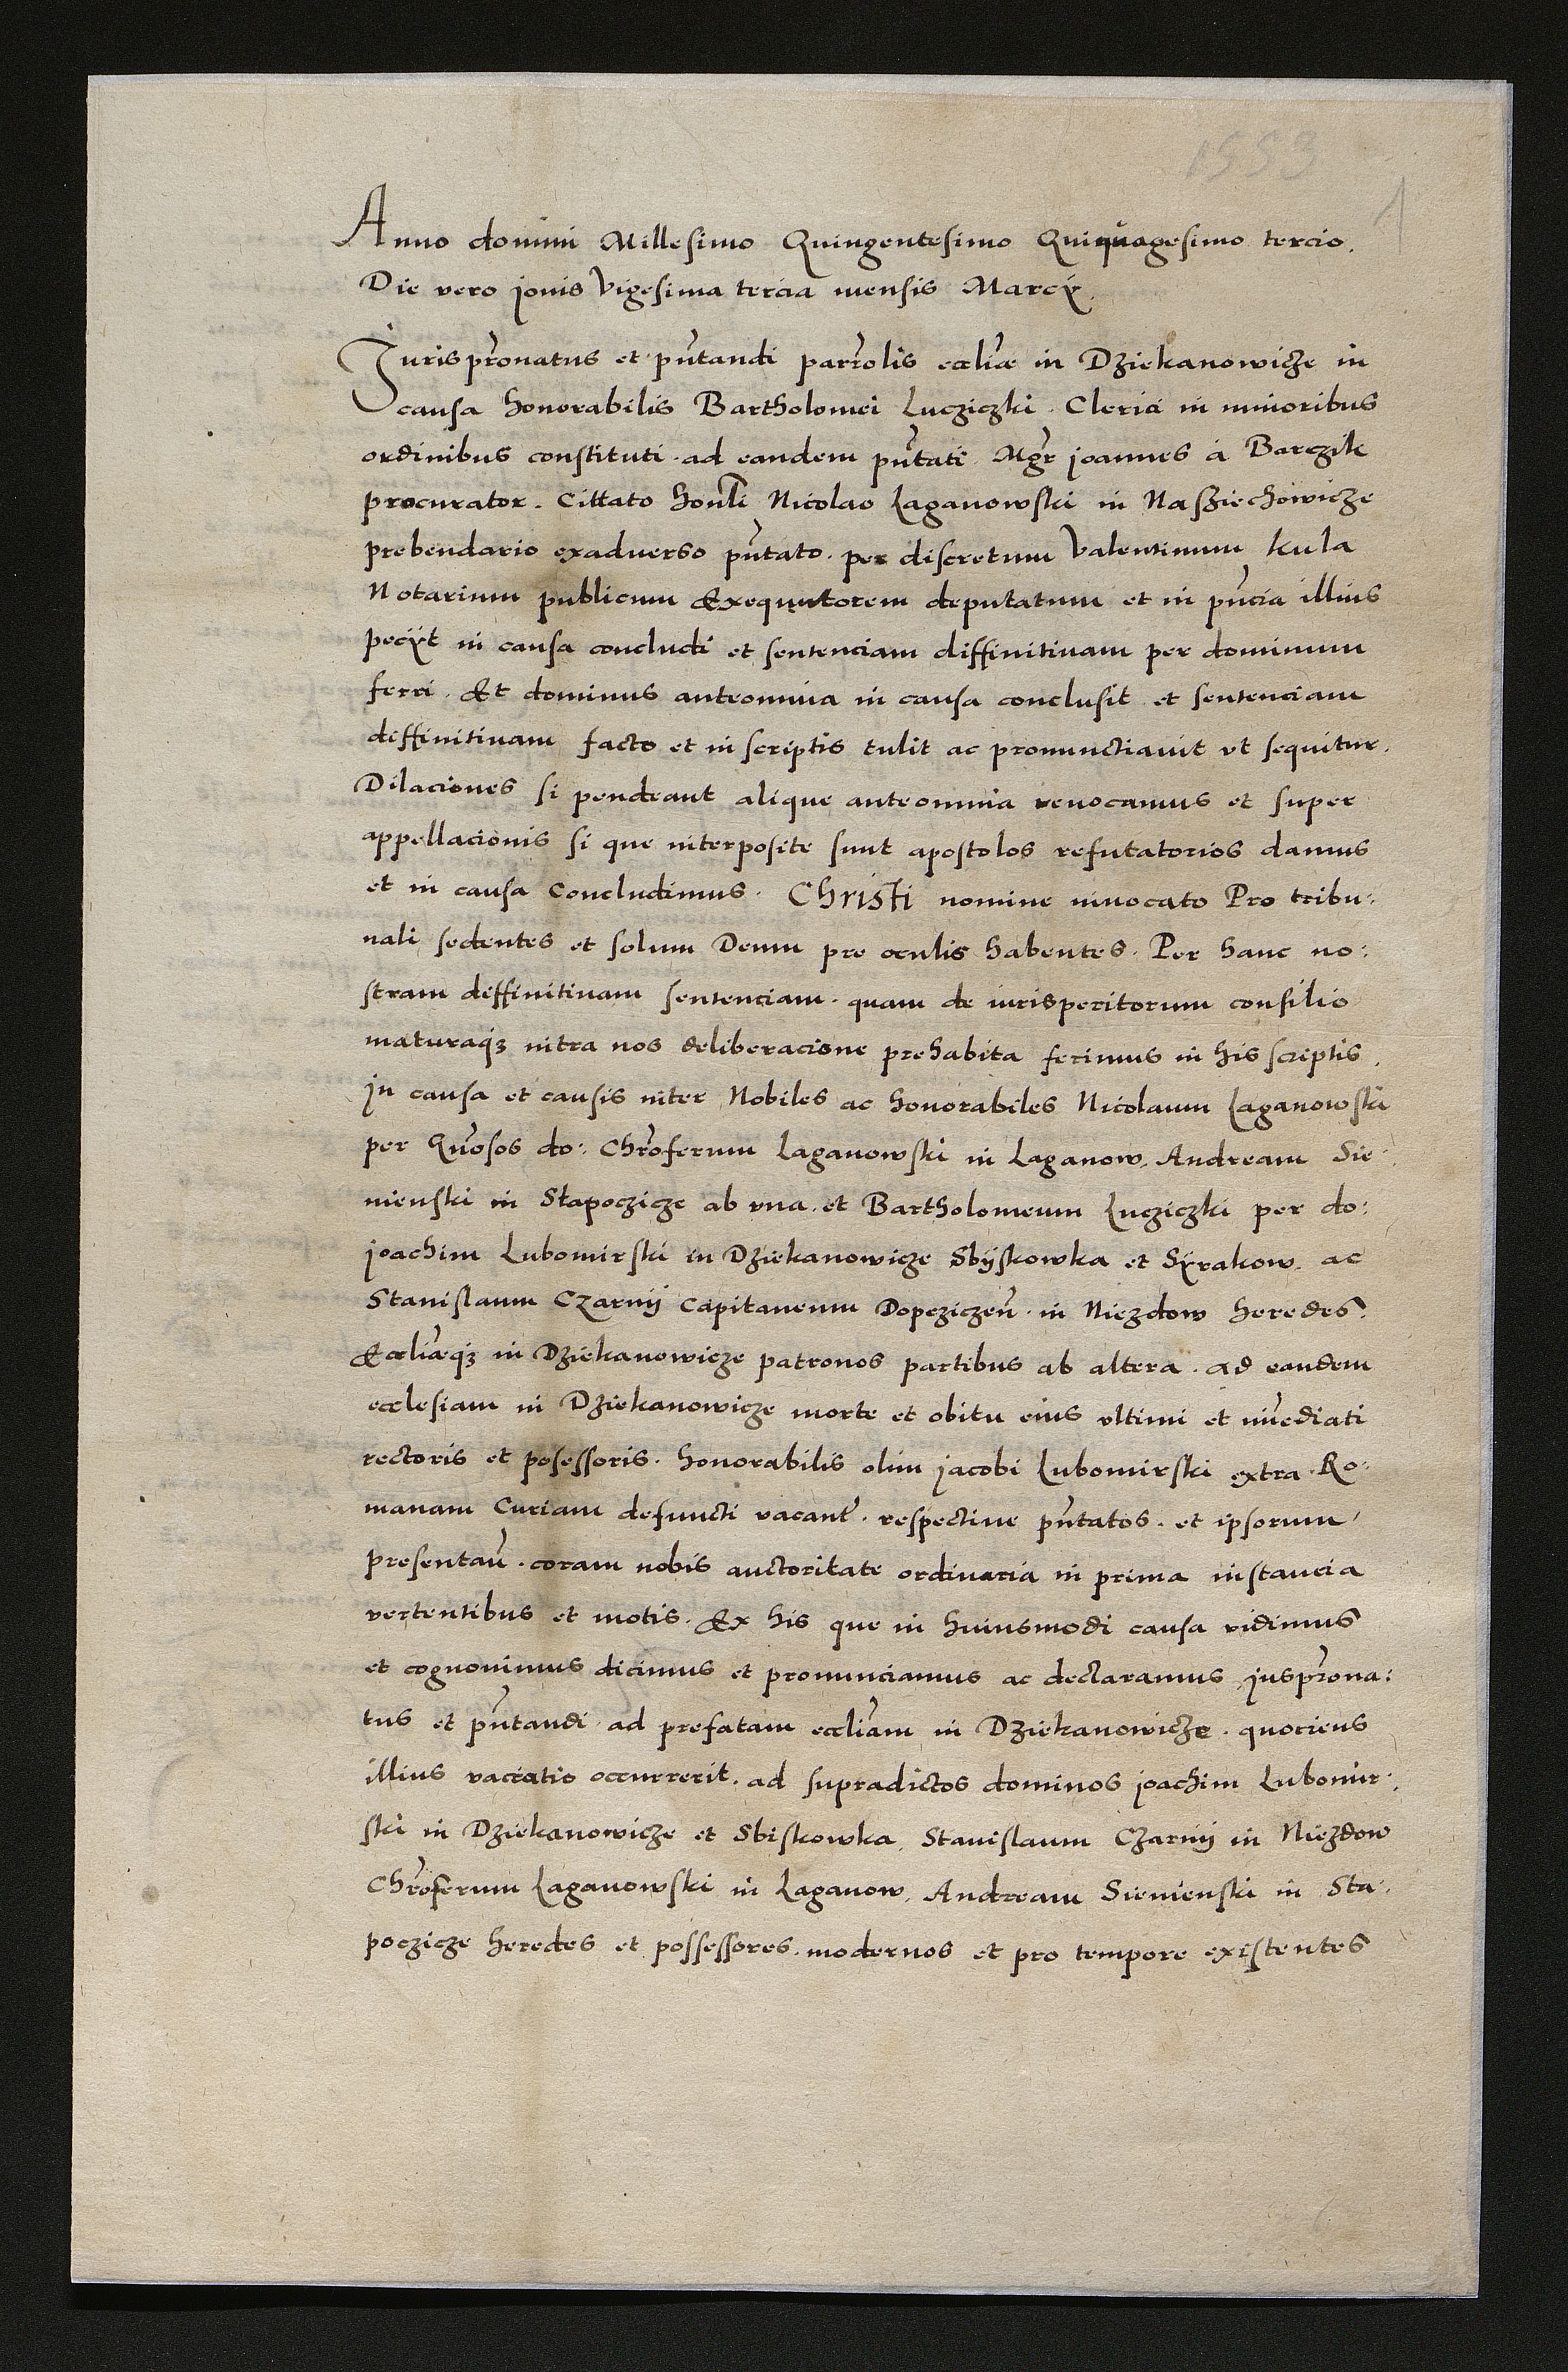 1553
1
Anno domini Millesimo Quingentesimo Quiquagesimo tercio.
Die vero jouis Vigesima tercia mensis Marcÿ.
Jurisprõnatus et pñtandi parrõlis eccliæ in Dziekanowicze in
causa honorabilis Bartholomei Lucziczki. Clerici in minoribus
ordinibus constituti. ad eandem pñtati. Mgr̃ joannes à Barczik
procurator. Cittato honlĩ Nicolao Laganowski in Nasziechowicze
prebendario exaduerso pñtato. per discretum Valentinum Kula
Notarium publicum Exequutorem deputatum et in pñcia illius
pecÿt in causa concludi et sentenciam diffinitiuam per dominum
ferri. Et dominus anteomnia in causa conclusit et sentenciam
diffinitiuam facto et in scriptis tulit ac pronunctiauit vt sequitur.
Dilaciones si pendeant alique anteomnia reuocamus et super
appellacionis si que interposite sunt apostolos refutatorios damus
et in causa Concludimus. Christi nomine inuocato Pro tribu:
nali sedentes et solum Deum pre oculis habentes. Per hanc no:
stram deffinitiuam sentenciam. quam de iurisperitorum consilio
maturaqȝ intra nos deliberacione prehabita ferimus in his scriptis.
jn causa et causis inter Nobiles ac honorabiles Nicolaum Laganowski
per Gñosos do: Chrõferum Laganowski in Laganow. Andream Sie:
nienski in Stapoczicze ab vna. et Bartholomeum Lucziczki per do:
joachim Lubomirski in Dziekanowicze Sbijskowka et Sÿrakow. ac
Stanislaum Czarnij Capitaneum Dopcziczeñ. in Niezdow heredes.
Eccliæqȝ in Dziekanowicze patronos partibus ab altera. ad eandem
ecclesiam in Dziekanowicze morte et obitu eius vltimi et im̃ediati
rectoris et posessoris. honorabilis olim jacobi Lubomirski extra Ro:
manam Curiam defuncti vacant̃. respectiue pñtatos. et ipsorum
presentañ. coram nobis auctoritate ordinaria in prima instancia
vertentibus et motis. Ex his que in huiusmodi causa vidimus
et cognouimus dicimus et pronunciamus ac declaramus jusprõna:
tus et pñtandi ad prefatam eccliãm in Dziekanowicze. quociens
illius vacatio occurrerit. ad supradictos dominos joachim Lubomir:
ski in Dziekanowicze et Sbiskowka. Stanislaum Czarnij in Niezdow
Chrõferum Laganowski in Laganow. Andream Sienienski in Sta:
poczicze heredes et possessores. modernos et pro tempore existentes